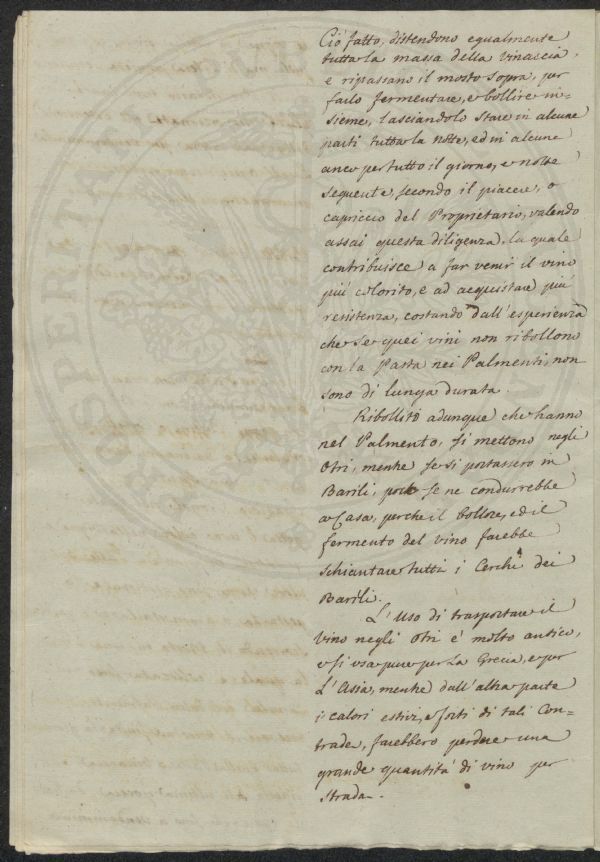 Ció fatto, distendono egualmente
tutta la massa della Vinaccia,
e ripassano il mosto sopra, per
farlo fermentare, e bollire in=
sieme, lasciandolo stare in alcune
parti tutta la notte, ed in alcune
anco per tutto il giorno, e notte
sequente, secondo il piacere, o
capriccio del Proprietario, valendo
assai questa diligenza, la quale
contribuisce a far venir il vino
piú colorito, e ad acquistare piú
resistenza, costando dall'esperienza
che se quei vini non ribollono
con la Pasta nei Palmenti, non
sono di lunga durata.
Ribollito adunque che hanno
nel Palmento, si mettono negli
Otri, mentre se si portassero in
Barili, poch se ne condurrebbe
a Casa, perche il bollore, ed il
fermento del vino farebbe
schiantare tutti i Cerchi dei
Barili.
L'Uso di trasportare il
vino negli Otri é molto antico,
e si usa pure per la Grecia, e per
L'Asia, mentre dall'altra parte
i calori estivi, e forti di tali Con=
trade, farebbero perdere una
grande quantitá di vino per
strada.